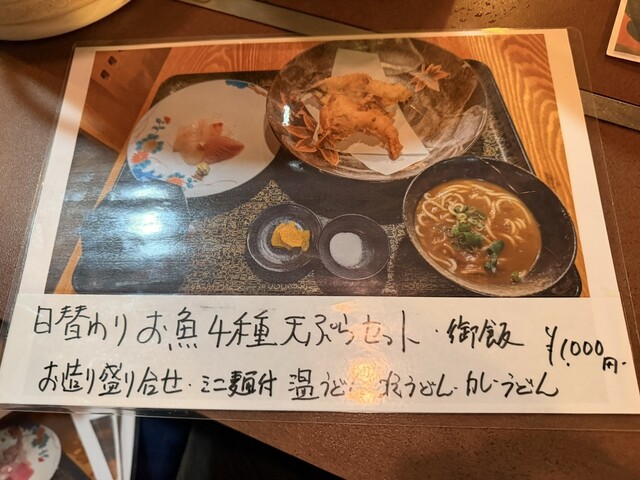 日替わり お魚4種 天ぷらセット・御飯 ¥1,000円.
お造り盛り合せ・ミニ麺付 温うどん うどん・カレーうどん